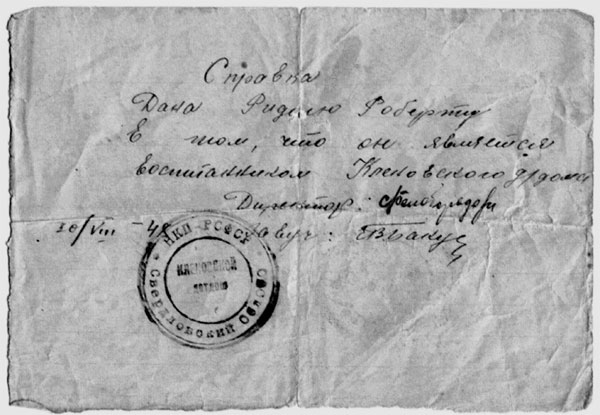 Справка
Дана Риделю Роберту
В том, что он является
воспитанником Кленовского д/дома
Директор:
20/VIII - 4
Завуч:
НКП-РСФСР
Свердловский Област
КЛЕНОВСКОЙ
ДЕТДОМ